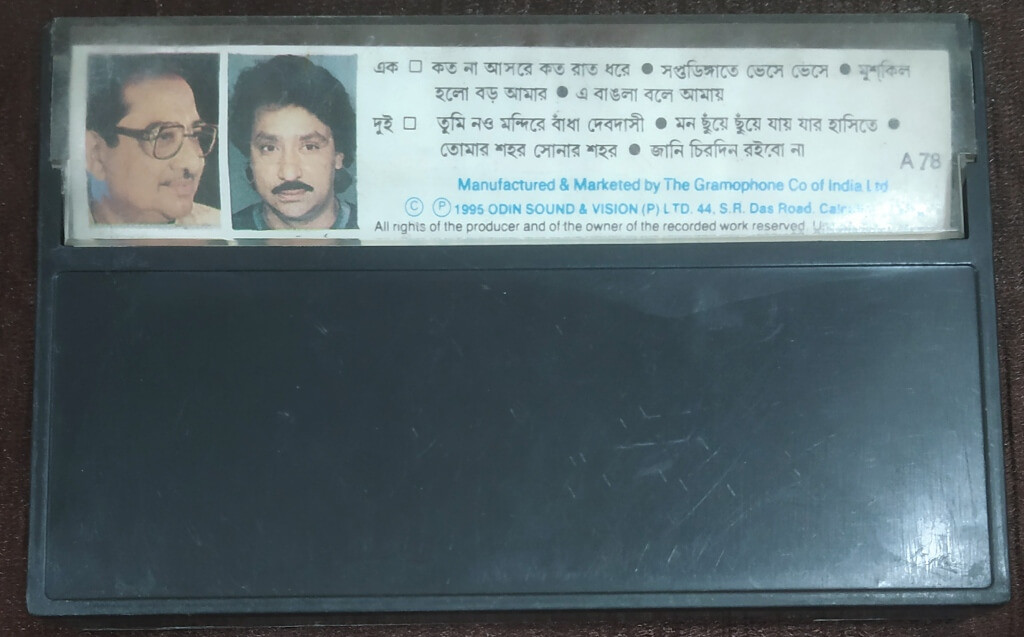 এক □ কত না আসরে কত রাত ধরে ● সপ্তডিঙ্গাতে ভেসে ভেসে ● মুশকিল
হলো বড় আমার ● এ বাঙলা বলে আমায়
দুই □ তুমি নও মন্দিরে বাঁধা দেবদাসী ● মন ছুঁয়ে ছুঁয়ে যায় যার হাসিতে ●
তোমার শহর সোনার শহর ● জানি চিরদিন রইবো না
A 78
Manufactured & Marketed by The Gramophone Co of India Ltd
© ℗ 1995 ODIN SOUND & VISION (P) LTD. 44, S.R. Das Road.
All rights of the producer and of the owner of the recorded work reserved.